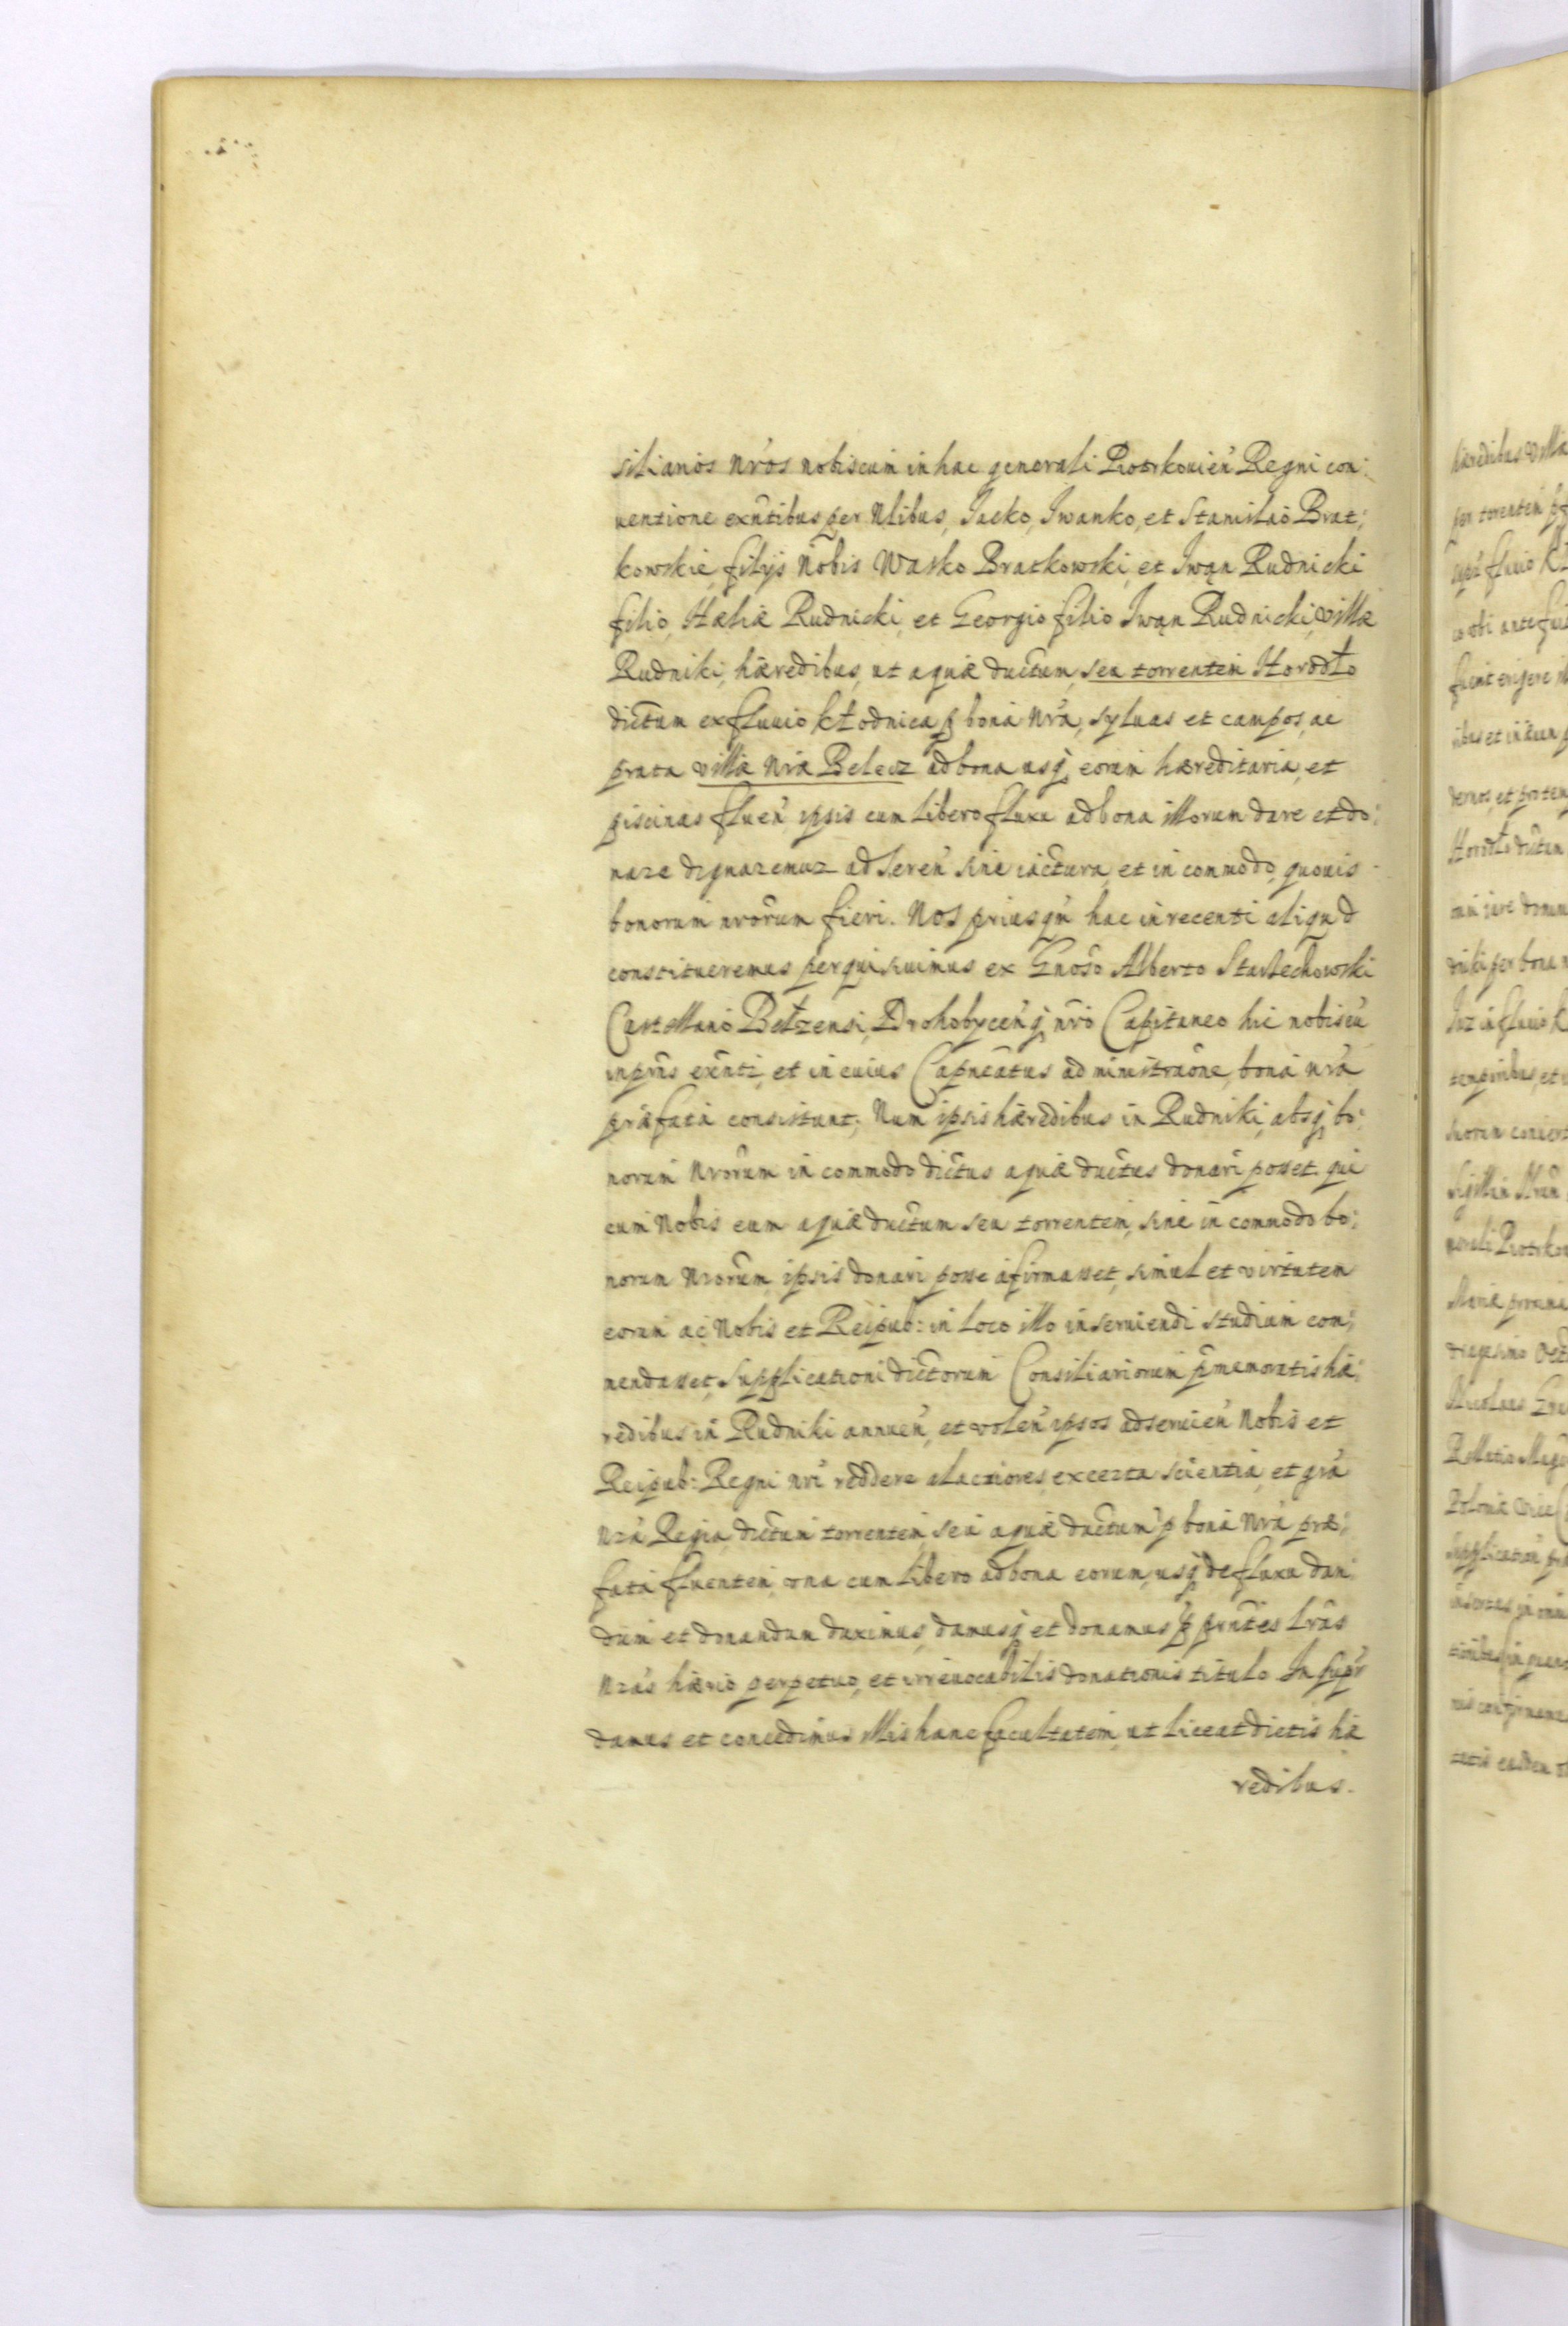 siliarios nr̃os nobiscum in hac generali Piotrkovien̄ Regni con:
uentione exñtibus per Nlibus, Jacko, Iwanko, et Stanislaō Brat:
kowskie filijs Nobis Wasko Bratkowski, et Iwąn Rudnicki
filio, Hæliæ Rudnicki, et Georgio filio Iwąn Rudnicki, villæ
Rudniki, hæredibus, ut aquæ ductum, seu torrentem Horodło
dictum ex fluuio Kłodnica ꝑ bona nr̃a, syluas et campos, ac
prata villæ nr̃æ Belecz ad bona usq́ eorum hæreditaria, et
piscinas fluen̄ ipsis cum libero fluxu ad bona illorum dare et do:
nare dignaremur ad seren̄ sine iactura, et in commodo, quouis
bonorum nrōrum fieri. Nos priusqu̅ hac in recenti aliqu̅d
constitueremus perquisiuimus ex Gnōso Alberto Starzechowski
Castellano Bełzensi, Drohobycen̄q́ nr̃o Capitaneo hic nobiscu̅
inprn̄s exn̄ti, et in cuius Capnēatus ad ministraōne, bona nr̃a
præfata consistunt; Num ipsis hæredibus in Rudniki, absq́ bo:
norum Nrōrum in commodo dictus aquæ ductus donari posset qui
cum Nobis eum aquæ ductum seu torrentem, sine in commodo bo:
norum Nrōrum, ipsis donari posse afirmasset, simul et virtutem
eorum ac Nobis et Reipub: in loco illo inseruiendi studium con:
mendasset, Supplicationi dictorum Consiliariorum p̄memoratis hæ:
redibus in Rudniki annuen̄, et volen̄ ipsos adseruien̄ Nobis et
Reipub: Regni nr̃i reddere alacriores, ex certa scientia, et gr̃a
Nr̃a Regia dictum torrentem, seu aquæ ductum ꝑ bona Nr̃a præ:
fata fluentem, vna cum libero ad bona eorum, usq́ defluxu dan:
dum et donandum duximus, damusq́ et donamus ꝑ prn̄tes lr̃as
Nr̃as hærio perpetuo, et irreuocabilis donationis titulo Insupr̄
damus et concedimus illis hanc facultatem, ut liceat dictis hæ
redibus.